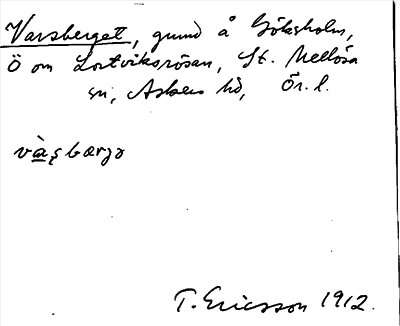 Varsberget, grund å Göksholm,
Ö om Lortviksrösan, St. Mellösa
sn, Askers hd, Ör. l.
vàʂbærjə
T. Ericsson 1912.